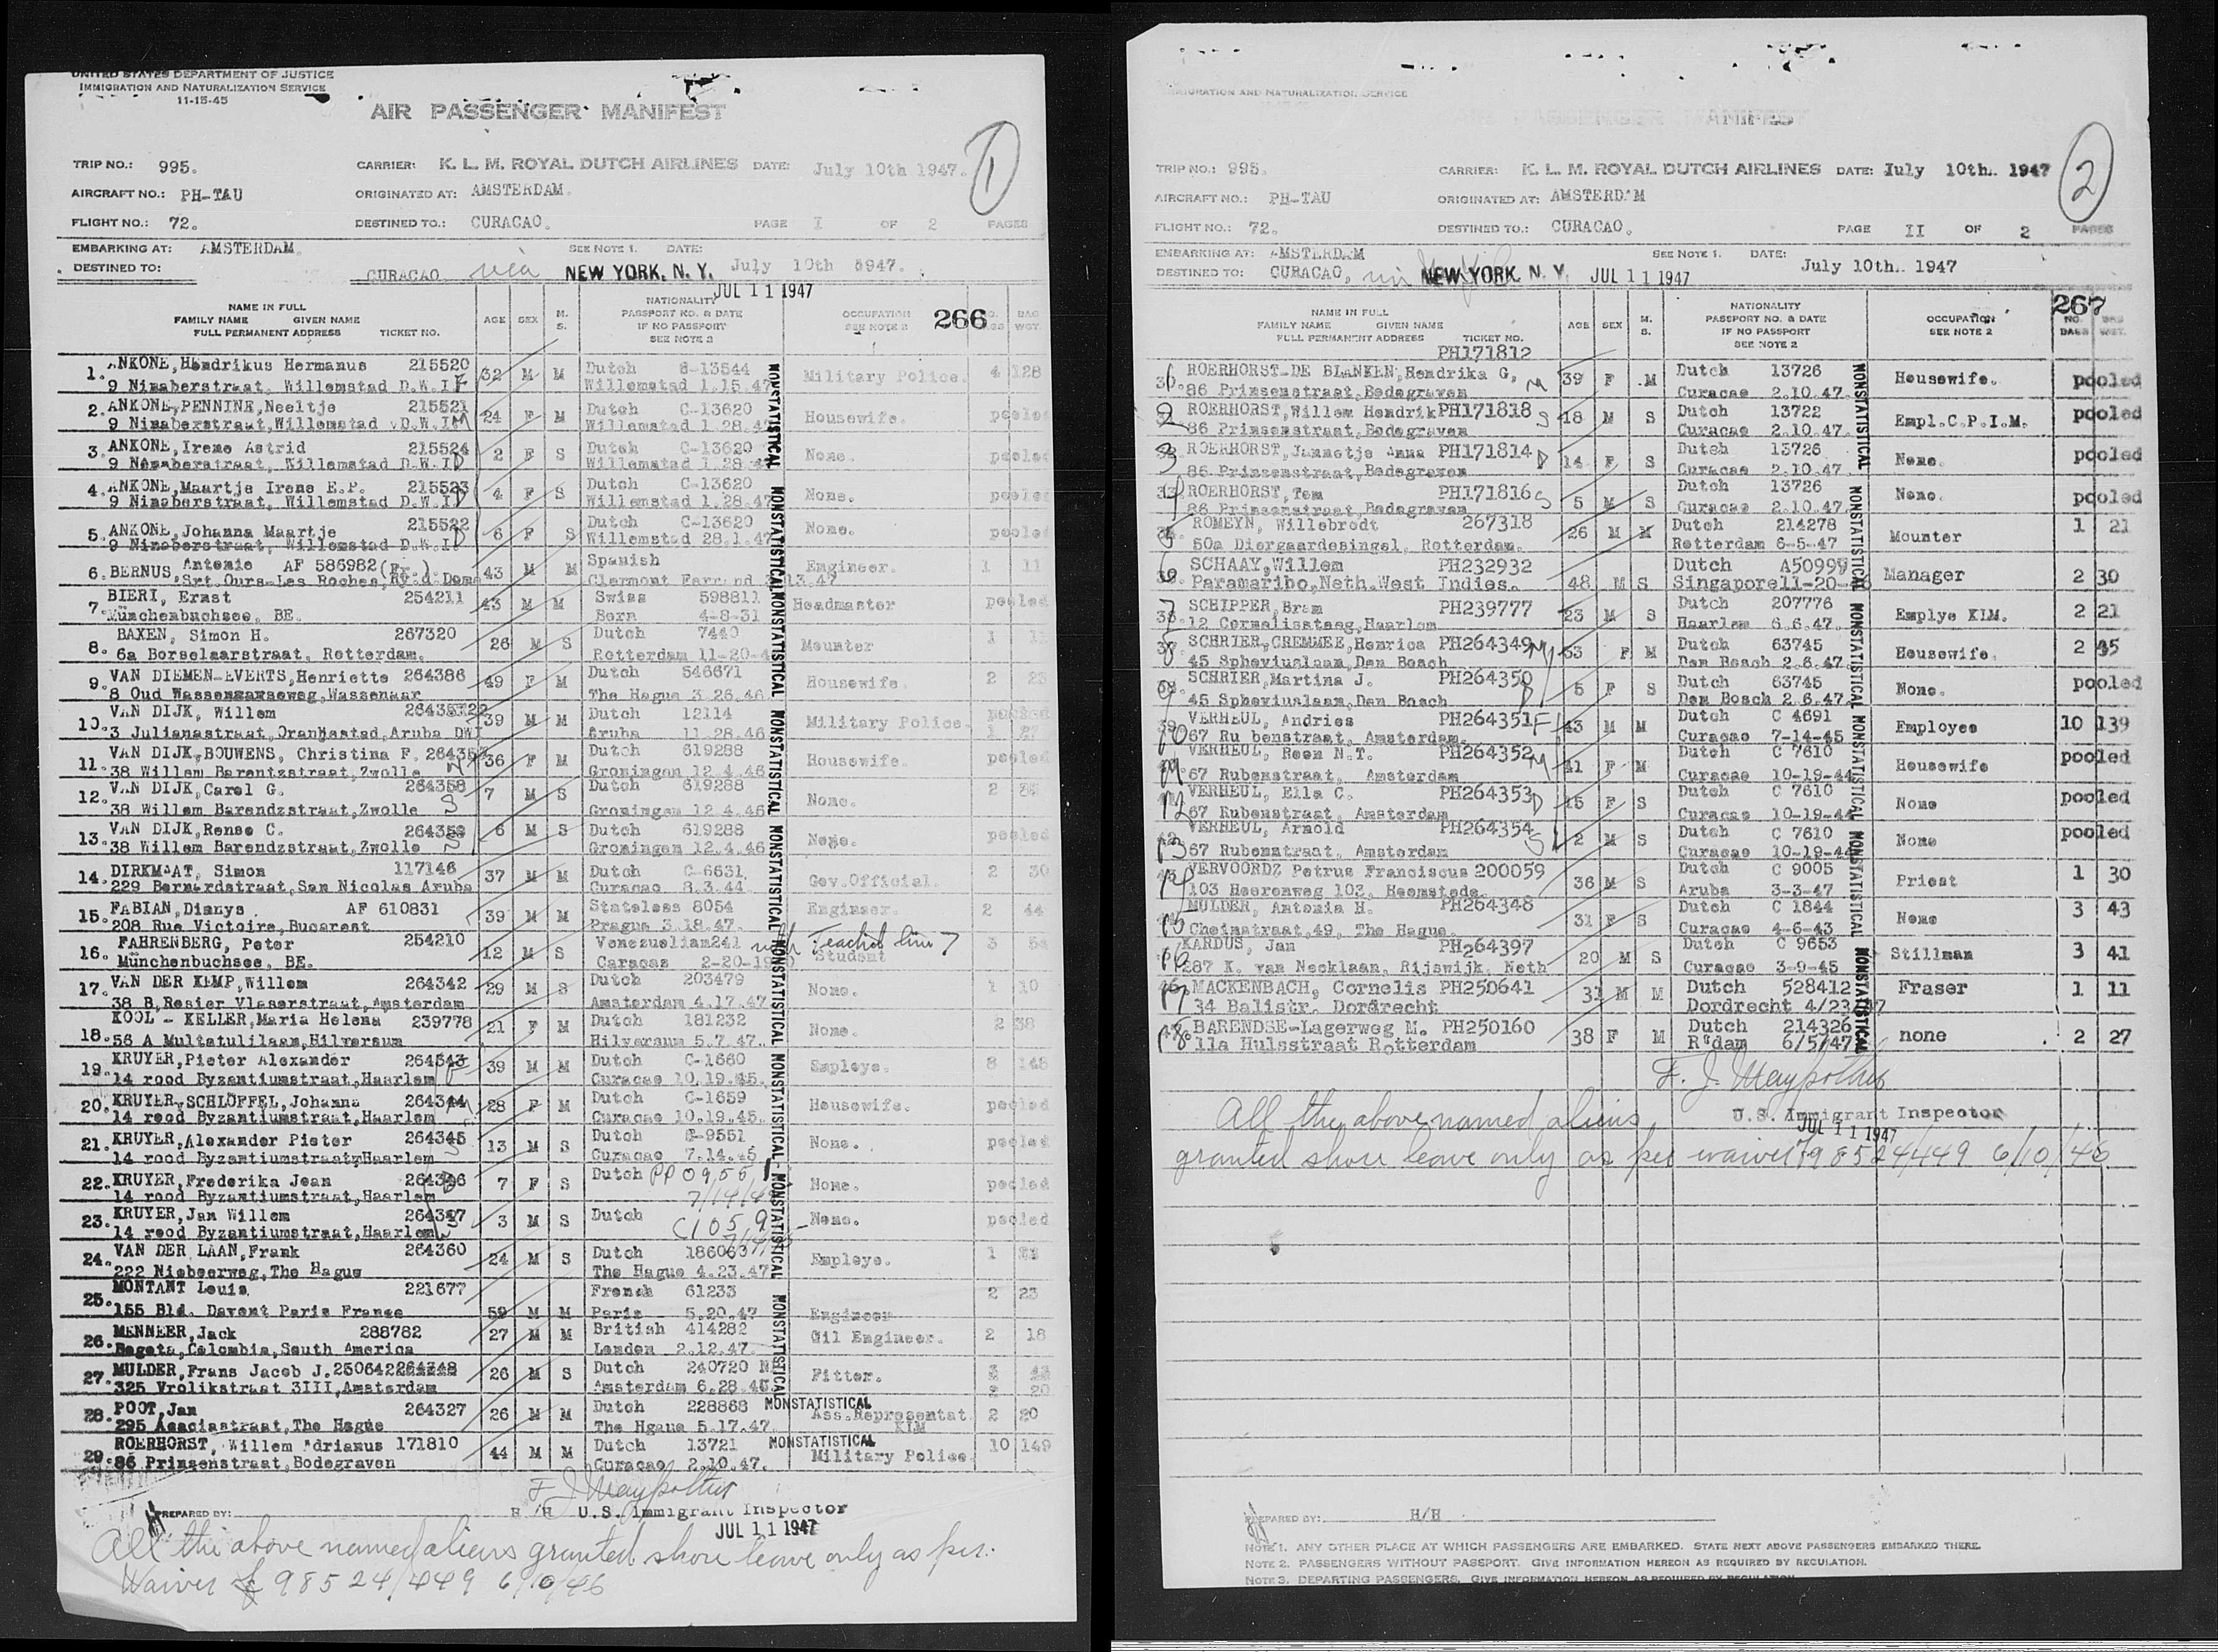 UNITED STATES DEPARTMENT OF JUSTICE
IMMIGRATION AND NATURALIZATION SERVICE
11-15-45
AIR PASSENGER MANIFEST
1
TRIP NO.: 995. CARRIER: K. L. M. ROYAL DUTCH AIRLINES DATE: July 10th 1947.
AIRCRAFT NO.: PH-TAU ORIGINATED AT: AMSTERDAM.
FLIGHT NO.: 72. DESTINED TO.: CURACAO. PAGE I OF 2 PAGES
EMBARKING AT: AMSTERDAM. SEE NOTE 1. DATE:
DESTINED TO: CURACAO via NEW YORK, N. Y. July 10th 5947.
JUL 11 1947
NAME IN FULL
FAMILY NAME GIVEN NAME
FULL PERMANENT ADDRESS TICKET NO.
AGE SEX M. S.
NATIONALITY
PASSPORT NO. & DATE
IF NO PASSPORT
SEE NOTE 2
OCCUPATION
SEE NOTE 2
266
1. ANKONE, Hendrikus Hermanus 215520 32 M M Dutch 13544 Military Police. 4 128
9 Nimaberstraat, Willemstad D.W.I. Willemstad 1.15.47
2. ANKONE, PENNINK, Neeltje 215521 24 F M Dutch C-13620 Housewife. pooled
9 Nimaberstraat, Willemstad D.W.I. M Willemstad 1.28.47
3. ANKONE, Irene Astrid 215524 2 F S Dutch C-13620 None. pooled
9 Nimaberstraat, Willemstad D.W.I. Willemstad 1.28.47
4. ANKONE, Maartje Irene E.P. 215523 4 F S Dutch C-13620 None. pooled
9 Nimaberstraat, Willemstad D.W.I. Willemstad 1.28.47
5. ANKONE, Johanna Maartje 215522 6 F S Dutch C-13620 None. pooled
9 Nimaberstraat, Willemstad D.W.I. Willemstad 28.1.47
6. BERNUS, Antonio AF 586982 (Fr.) 43 M M Spanish Engineer. 1 11
Srt. Ours-Les Roches, Clermont
7. BIERI, Ernst 254211 43 M M Swiss 598811 Headmaster pooled
Münchenbuchsee, BE. Bern 4-8-31
8. BAXEN, Simon H. 267320 26 M S Dutch 7440 Mounter 1
6a Borselaarstraat, Rotterdam. Rotterdam 11-20-4
9. VAN DIEMEN-EVERTS, Henriette 264386 49 F M Dutch 546671 Housewife. 2 23
8 Oud Wassenaarseweg, Wassenaar The Hague 3.26.46
10. VAN DIJK, Willem 39 M M Dutch 12114 Military Police.
3 Julianastraat, Oranjestad, Aruba DWI Aruba 11.28.46
11. VAN DIJK, BOUWENS, Christina F. 264357 36 F M Dutch 619288 Housewife. pooled
38 Willem Barentzstraat, Zwolle Groningen 12.4.46
12. VAN DIJK, Carel G. 264358 7 M S Dutch 619288 None. 2
38 Willem Barendzstraat, Zwolle Groningen 12.4.46
13. VAN DIJK, Rense C. 264359 6 M S Dutch 619288 None. pooled
38 Willem Barendzstraat, Zwolle Groningen 12.4.46
14. DIRKMAAT, Simon 117146 37 M M Dutch C-6631 Gov.Official. 2 30
229 Bernardstraat, San Nicolas Aruba Curacao 8.3.44
15. FABIAN, Dianys AF 610831 39 M M Stateless 8054 Engineer. 2 44
208 Rue Victoire, Bucarest Prague 3.18.47.
16. FAHRENBERG, Peter 254210 12 M S Venezuelian 241 with Teacher line 7 Student 3 54
Münchenbuchsee, BE. Caracas
17. VAN DER KEMP, Willem 264342 29 M S Dutch 203479 None. 1 10
38 B, Rosier Vlaserstraat, Amsterdam Amsterdam 4.17.47
18. KOOL - KELLER, Maria Helena 239778 21 F M Dutch 181232 None. 2 38
56 A Multatulilaan, Hilversum Hilversum 5.7.47.
19. KRUYER, Pieter Alexander 264343 39 M M Dutch C-1660 Employe. 8 148
14 rood Byzantiumstraat, Haarlem Curacao 10.19.45.
20. KRUYER, SCHLÖFFEL, Johanna 264344 28 F M Dutch C-1659 Housewife. pooled
14 rood Byzantiumstraat, Haarlem Curacao 10.19.45.
21. KRUYER, Alexander Pieter 264345 13 M S Dutch 9551 None. pooled
14 rood Byzantiumstraat, Haarlem Curacao 7.14.45
22. KRUYER, Frederika Jean 264346 7 F S Dutch PP 09551 None. pooled
14 rood Byzantiumstraat, Haarlem
23. KRUYER, Jan Willem 264347 3 M S Dutch C1059 None. pooled
14 rood Byzantiumstraat, Haarlem
24. VAN DER LAAN, Frank 264360 24 M S Dutch 186063 Employe. 1
222 Nieboerweg, The Hague The Hague 4.23.47
25. MONTANT Louis. 221677 59 M M French 61233 Engineer 2 23
155 Bld. Davont Paris France Paris 5.20.47
26. MENNEER, Jack 288782 27 M M British 414282 Oil Engineer. 2 18
Bogota, Colombia, South America London 2.12.47.
27. MULDER, Frans Jacob J. 250642 264348 26 M S Dutch 240720 Fitter.
325 Vrolikstraat 3III, Amsterdam Amsterdam 6.28.45
28. POOT, Jan 264327 26 M M Dutch 228868 Ass.Representat. KLM 2 20
295 Acaciastraat, The Hague The Hgaue 5.17.47.
29. ROERHORST, Willem Adrianus 171810 44 M M Dutch 13721 Military Police. 10 149
86 Prinsenstraat, Bodegraven Curacao 2.10.47.
NONSTATISTICAL
PREPARED BY: H/H U.S. Immigrant Inspector
JUL 11 1947
All the above named aliens granted shore leave only as per:
Waiver 98524/449 6/10/46
IMMIGRATION AND NATURALIZATION SERVICE
AIR PASSENGER MANIFEST
2
TRIP NO.: 995. CARRIER: K. L. M. ROYAL DUTCH AIRLINES DATE: July 10th. 1947
AIRCRAFT NO.: PH-TAU ORIGINATED AT: AMSTERDAM
FLIGHT NO.: 72. DESTINED TO.: CURACAO. PAGE II OF 2 PAGES
EMBARKING AT: AMSTERDAM SEE NOTE 1. DATE: July 10th. 1947
DESTINED TO: CURACAO, via NEW YORK, N. Y. JUL 11 1947
NAME IN FULL
FAMILY NAME GIVEN NAME
FULL PERMANENT ADDRESS TICKET NO.
AGE SEX M. S.
NATIONALITY
PASSPORT NO. & DATE
IF NO PASSPORT
SEE NOTE 2
OCCUPATION
SEE NOTE 2
267
NO. BAGS
PH171812
ROERHORST-DE BLANKEN, Hendrika G. M 39 F M Dutch 13726 Housewife. pooled
86 Prinsenstraat, Bodegraven Curacao 2.10.47.
2 ROERHORST, Willem Hendrik PH171818 S 18 M S Dutch 13722 Empl.C.P.I.M. pooled
86 Prinsenstraat, Bodegraven Curacao 2.10.47.
3 ROERHORST, Jannetje Anna PH171814 D 14 F S Dutch 13726 None. pooled
86 Prinsenstraat, Bodegraven Curacao 2.10.47.
4 ROERHORST, Tom PH171816 S 5 M S Dutch 13726 None. pooled
86 Prinsenstraat, Bodegraven Curacao 2.10.47.
5 ROMEYN, Willebrodt 267318 26 M M Dutch 214278 Mounter 1 21
50a Diergaardesingel. Rotterdam. Rotterdam 6-5-47
6 SCHAAY, Willem PH232932 48 M S Dutch A50999 Manager 2 30
Paramaribo, Neth. West Indies. Singapore 11-20-
7 SCHIPPER, Bram PH239777 23 M S Dutch 207776 Emplye KLM. 2 21
12 Cornalissteeg, Haarlem Haarlem 6.6.47.
8 SCHRIER, CREMMEE, Henrica PH264349 M 63 F M Dutch 63745 Housewife. 2 35
45 Spheviuslaan, Den Bosch Den Bosch 2.6.47.
9 SCHRIER, Martina J. PH264350 D 5 F S Dutch 63745 None. pooled
45 Spheviuslaan, Den Bosch Den Bosch 2.6.47.
10 VERHEUL, Andries PH264351 F 43 M M Dutch C 4691 Employee 10 139
67 Rubenstraat, Amsterdam. Curacao 7-14-45
11 VERHEUL, Roen N.T. PH264352 M 41 F M Dutch C 7610 Housewife pooled
67 Rubenstraat, Amsterdam Curacao 10-19-44
12 VERHEUL, Ella C. PH264353 D 15 F S Dutch C 7610 None pooled
67 Rubenstraat, Amsterdam Curacao 10-19-44
13 VERHEUL, Arnold PH264354 S 2 M S Dutch C 7610 None pooled
67 Rubenstraat, Amsterdam Curacao 10-19-44
14 VERVOORDZ Petrus Franciscus 200059 36 M S Dutch C 9005 Priest 1 30
103 Heerenweg 103, Heemstede. Aruba 3-3-47
15 MULDER, Antonia H. PH264348 31 F S Dutch C 1844 None 3 43
Cheimstraat, 49, The Hague. Curacao 4-6-43
16 KARDUS, Jan PH264397 20 M S Dutch C 9653 Stillman 3 41
287 K. van Necklaan, Rijswijk, Neth Curacao 3-9-45
17 MACKENBACH, Cornelis PH250641 31 M M Dutch 528412 Fraser 1 11
34 Balistr. Dordrecht Dordrecht 4/23/47
18 BARENDSE-Lagerweg M. PH250160 38 F M Dutch 214326 none 2 27
11a Hulsstraat Rotterdam R'dam 6/5/47
NONSTATISTICAL
U.S. Immigrant Inspector
JUL 11 1947
All the above named aliens
granted shore leave only as per waiver 98524/449 6/10/46
PREPARED BY: H/H
NOTE 1. ANY OTHER PLACE AT WHICH PASSENGERS ARE EMBARKED. STATE NEXT ABOVE PASSENGERS EMBARKED THERE.
NOTE 2. PASSENGERS WITHOUT PASSPORT. GIVE INFORMATION HEREON AS REQUIRED BY REGULATION.
NOTE 3. DEPARTING PASSENGERS. GIVE INFORMATION HEREON AS REQUIRED BY REGULATION